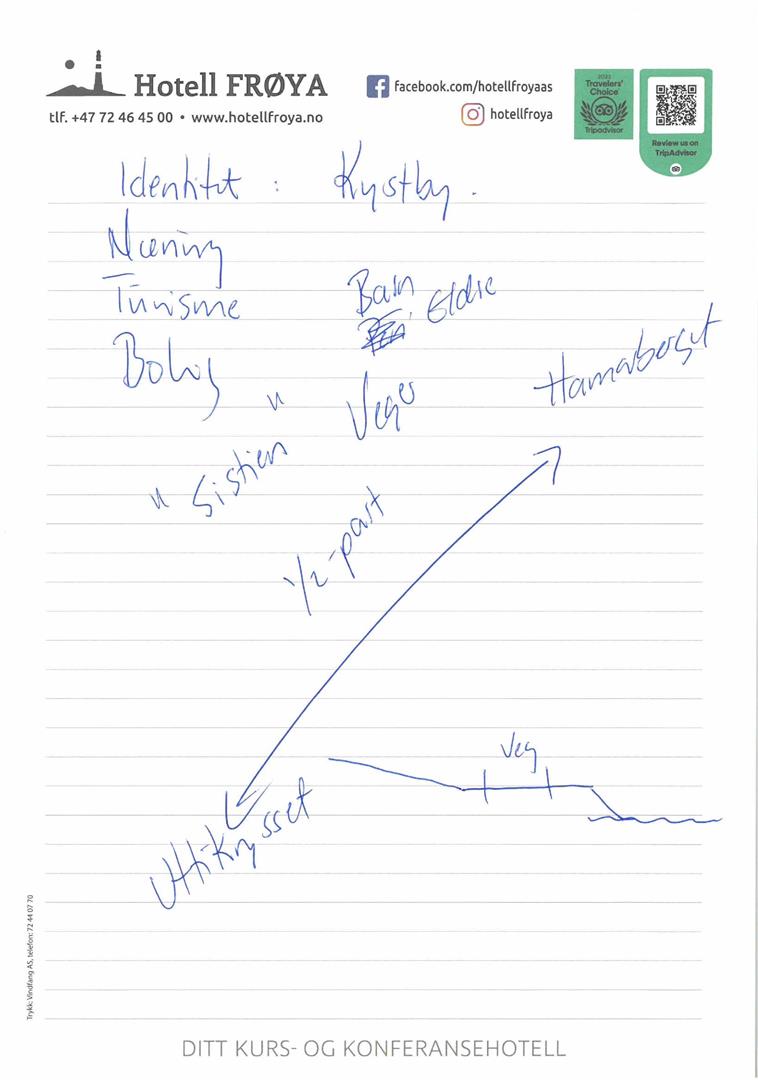 Hotell FRØYA
tlf. +47 72 46 45 00 • www.hotellfroya.no
facebook.com/hotellfroyaas
hotellfroya
2023
Travelers'
Choice
Tripadvisor
Review us on
TripAdvisor
Identitet : Kystby.
Næring
Turisme
Barn, Eldre
Bolig
Veger
Hamarberget
"Sistien"
1/2-part
Veg
Uttikrysset
Trykk: Vindfang AS, telefon: 72 44 07 70
DITT KURS- OG KONFERANSEHOTELL